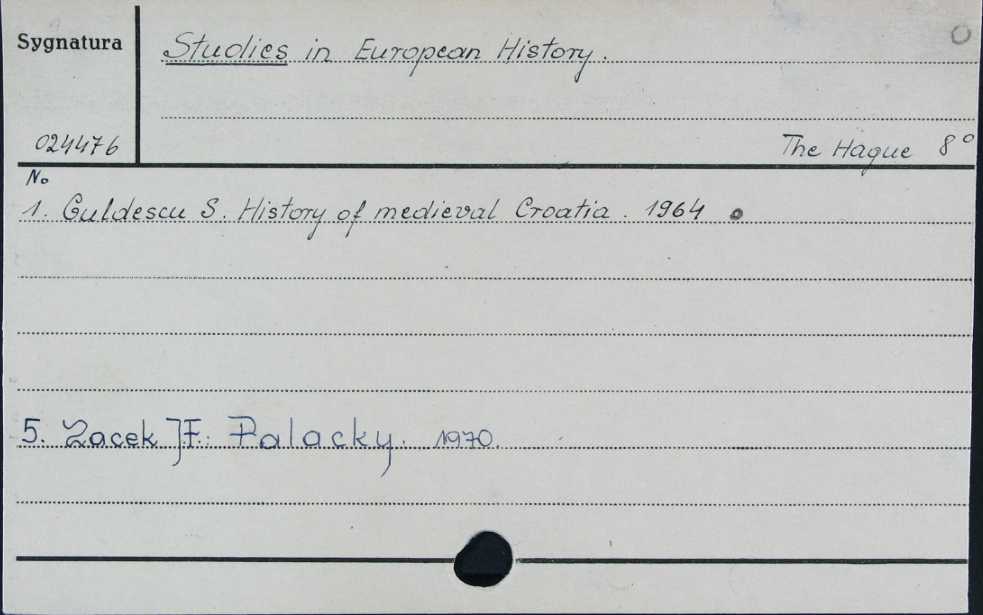 Sygnatura
Studies in European History.
024476
The Hague 8°
No
1. Guldescu S. History of medieval Croatia. 1964
5. Zacek J.F. Palacky. 1970.